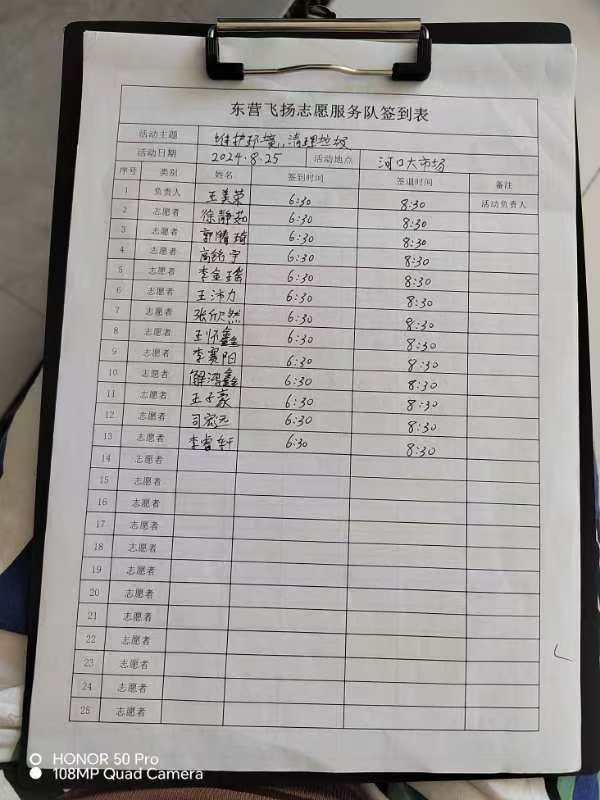 东营飞扬志愿服务队签到表
活动主题 维护环境,清理垃圾
活动日期 2024.8.25 活动地点 河口大市场
序号 类别 姓名 签到时间 签退时间 备注
1 负责人 王美荣 6:30 8:30 活动负责人
2 志愿者 徐静茹 6:30 8:30
3 志愿者 郭精琦 6:30 8:30
4 志愿者 高绍宇 6:30 8:30
5 志愿者 李金瑶 6:30 8:30
6 志愿者 王沛力 6:30 8:30
7 志愿者 张欣然 6:30 8:30
8 志愿者 王怀鑫 6:30 8:30
9 志愿者 李赛阳 6:30 8:30
10 志愿者 解鸿鑫 6:30 8:30
11 志愿者 王子豪 6:30 8:30
12 志愿者 司宏元 6:30 8:30
13 志愿者 李睿轩 6:30 8:30
14 志愿者
15 志愿者
16 志愿者
17 志愿者
18 志愿者
19 志愿者
20 志愿者
21 志愿者
22 志愿者
23 志愿者
24 志愿者
25 志愿者
HONOR 50 Pro
108MP Quad Camera